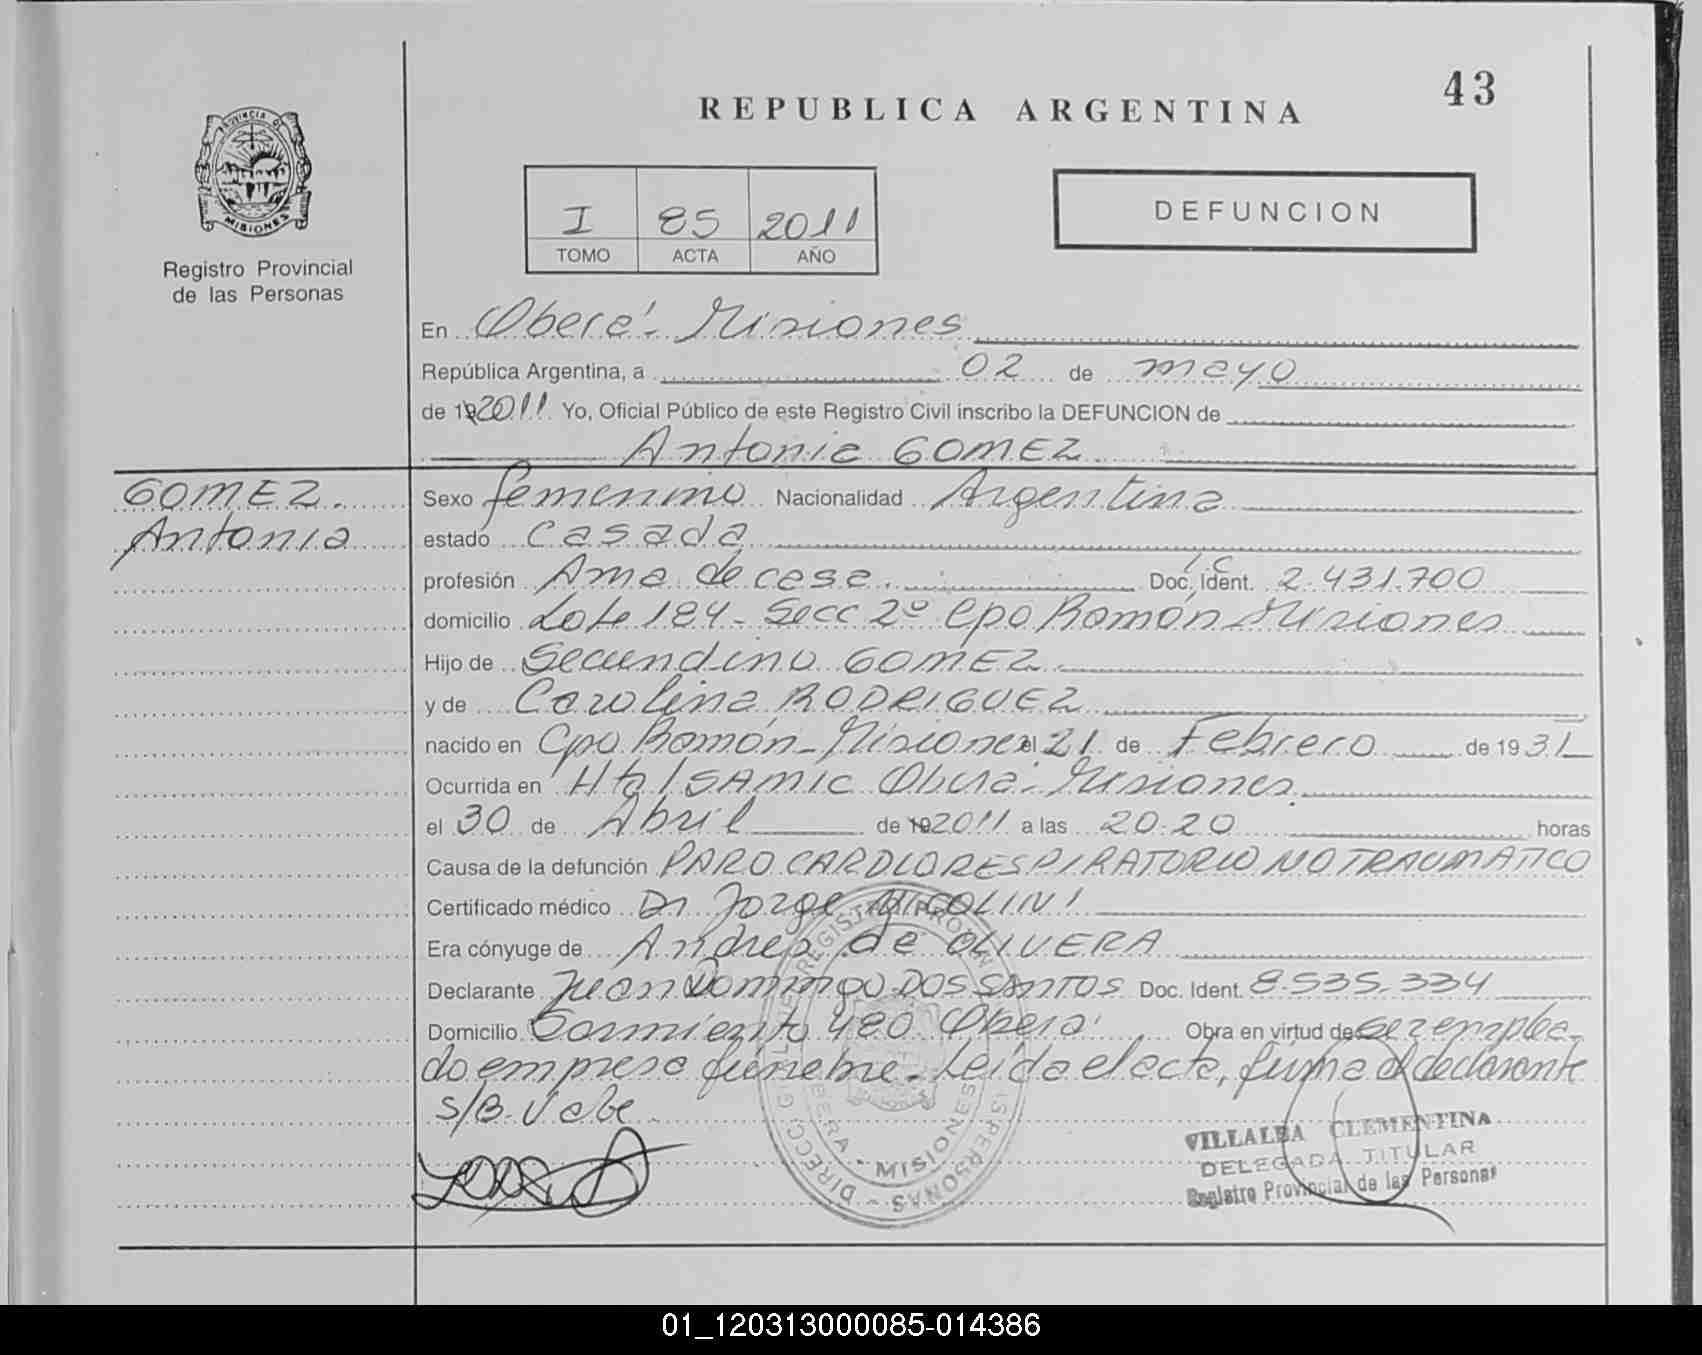 43
REPUBLICA ARGENTINA
PROVINCIA DE
MISIONES
Registro Provincial
de las Personas
I 85 2011
TOMO ACTA AÑO
DEFUNCION
En Oberá - Misiones
República Argentina, a 02 de mayo
de 192011 Yo, Oficial Público de este Registro Civil inscribo la DEFUNCION de
Antonia GOMEZ
GOMEZ
Antonia
Sexo femenino Nacionalidad Argentina
estado casada
profesión Ama de casa. Doc. Ident. LC 2.431.700
domicilio Lote 184 - Secc 2º Cpo Ramón Misiones
Hijo de Secundino GOMEZ
y de Carolina RODRIGUEZ
nacido en Cpo. Ramón - Misiones el 21 de Febrero de 1931
Ocurrida en Htal SAMIC Oberá - Misiones.
el 30 de Abril de 192011 a las 20.20 horas
Causa de la defunción PARO CARDIORESPIRATORIO NO TRAUMATICO
Certificado médico Dr Jorge NICOLINI
Era cónyuge de Andres de OLIVERA
Declarante Juan Domingo DOS SANTOS Doc. Ident. 8.535.334
Domicilio Sarmiento 480 Oberá Obra en virtud de ser emplea-
do empresa fúnebre. Leída el acta, firma el declarante
S/B. Vale
VILLALBA CLEMENTINA
DELEGADA TITULAR
Registro Provincial de las Personas
OBERA - MISIONES
01_120313000085-014386